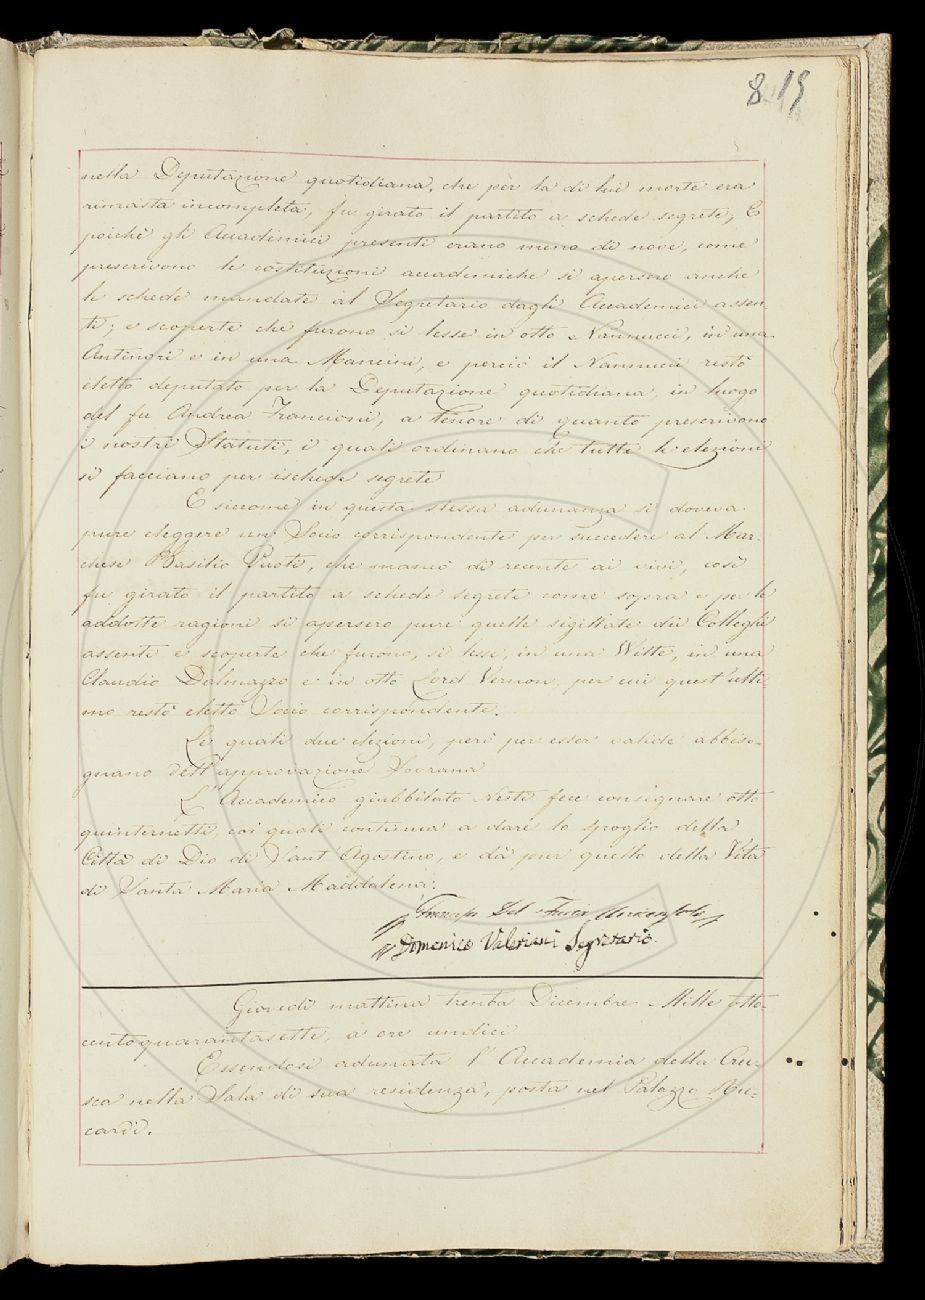 8. 19
nella Deputazione quotidiana, che per la di lui morte era
rimasta incompleta, fu girato il partito a schede segrete; E
poiché gli Accademici presenti erano meno di nove, come
prescrivono le costituzioni accademiche si apersero anche
le schede mandate al Segretario dagli Accademici assen-
ti; e scoperte che furono si lesse in otto Nannucci, in una
Antinori e in una Mancini, e perciò il Nannucci restò
eletto deputato per la Deputazione quotidiana, in luogo
del fu Andrea Francioni, a tenore di quanto prescrivono
i nostri Statuti, i quali ordinano che tutte le elezioni
si facciano per ischede segrete
E siccome in questa stessa adunanza si doveva
pure eleggere un Socio corrispondente per succedere al Mar-
chese Basilio Puoti, che mancò di recente ai vivi, così
fu girato il partito a schede segrete come sopra e per le
addotte ragioni si apersero pure quelle sigillate dei Colleghi
assenti e scoperte che furono, si lesse, in una Witte, in una
Claudio Dalmazzo e in otto Lord Vernon, per cui quest'ulti-
mo restò eletto Socio corrispondente.
Le quali due elezioni, però per esser valide abbiso-
gnano dell'approvazione Sovrana
L'Accademico giubbilato Nesti fece consegnare otto
quinternetti, coi quali continua a dare lo spoglio della
Città di Dio di Sant'Agostino, e dà pur quello della Vita
di Santa Maria Maddalena.
Del Furia
Domenico Valeriani Segretario.
Giovedì mattina trenta Dicembre Mille otto-
centoquarantasette, a ore undici
Essendosi adunata l'Accademia della Cru-
sca nella Sala di sua residenza, posta nel Palazzo Ric-
cardi.